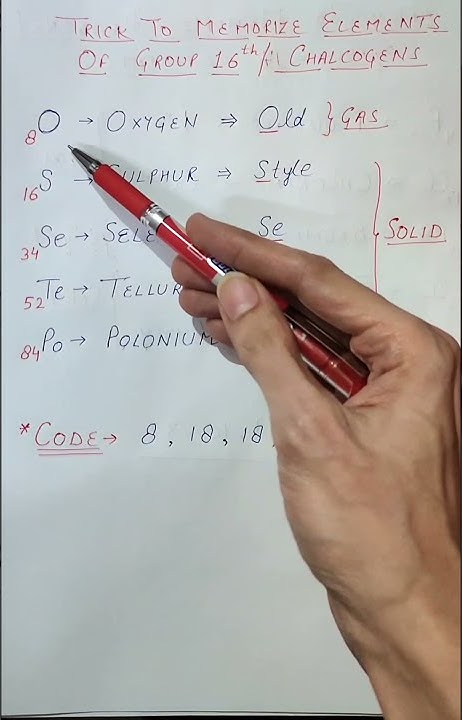 TRICK TO MEMORIZE ELEMENTS
OF GROUP 16th/ CHALCOGENS
8O → OXYGEN ⇒ Old } GAS
16S → SULPHUR ⇒ Style
34Se → SELE Se
SOLID
52Te → TELLUR
84Po → POLONIUM
*CODE → 8, 18, 18,